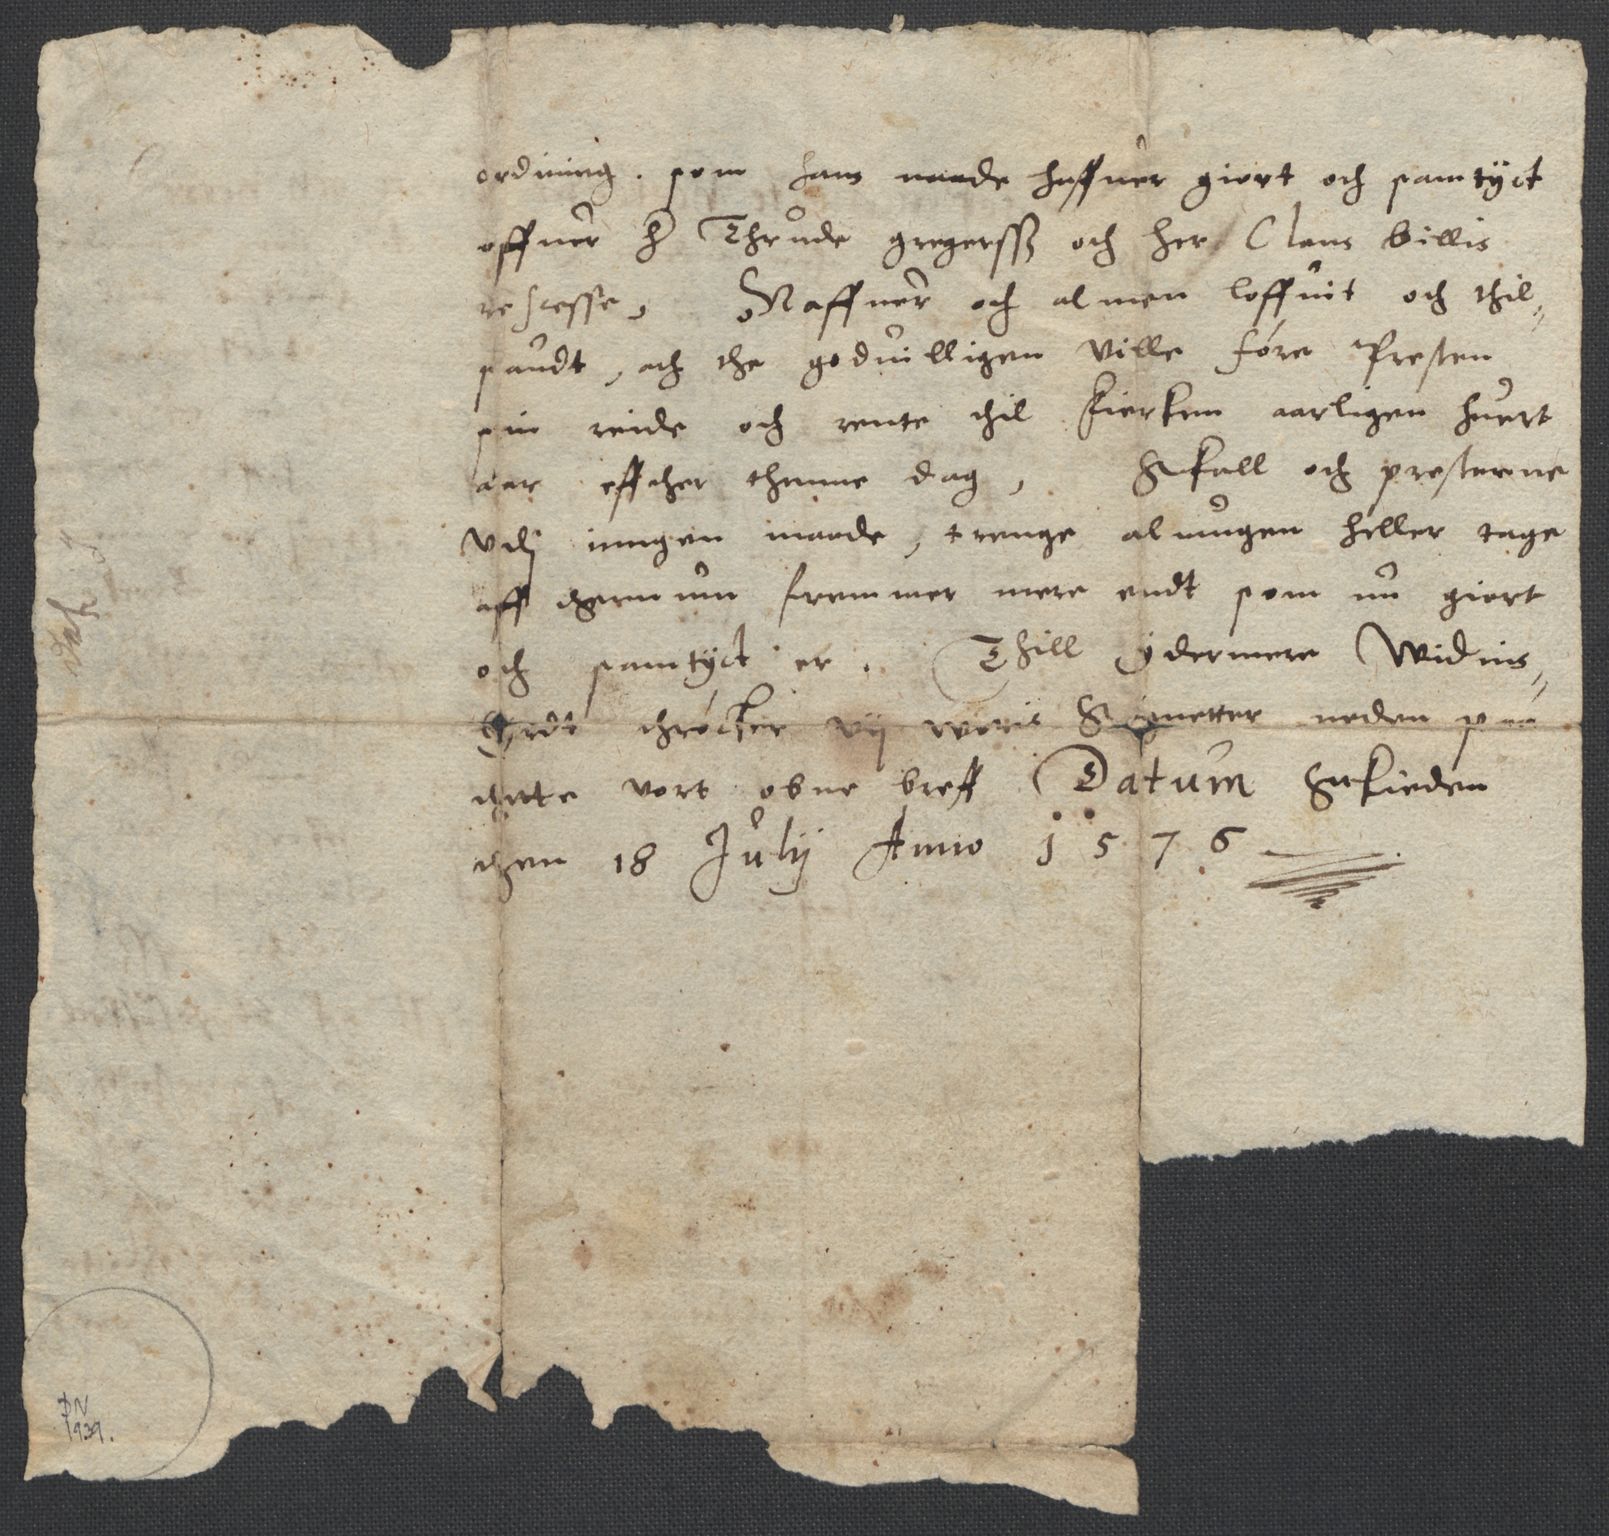 ordning . som hans naade haffuer giort och samtÿct
offuer h Thrude gregerssß och her Claus billis
rescesse, Naffner och almen loffuit och thil„
saudt, ath the goduilligen ville före Presten
sin reide och rente thil kierken aarligen huert
aar effther thenne dag, Skall och presterne
vdj inngen maade, trenge almugen heller tage
aff thennum fremmer mere endt som nu giort
och samtÿct er . Thill ÿdermere Widnis„
byrdt thröcker vij woris Signetter neden paa
thette vort obne breff Datum Skieden
then 18 Julij Anno 1 5 7 6
DN